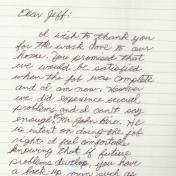 Dear Jeff:
I wish to thank you
for the work done to our
home. You promised that
we would be satisfied
when the job was complete
and I am now. However
we did experience several
problems and I can't say
enough. Mr John Bero. He
is intent on doing the job
right. I feel comfortable
knowing that if future
problems develop, you have
a back-up man such as